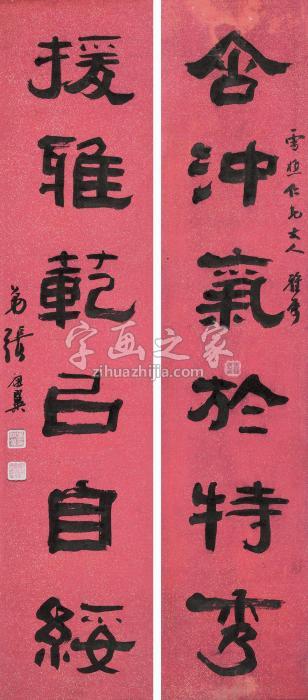 仁兄大人
含沖氣於特秀
援雅範以自綏
弟張祖翼
字画之家
zihuazhijia.com